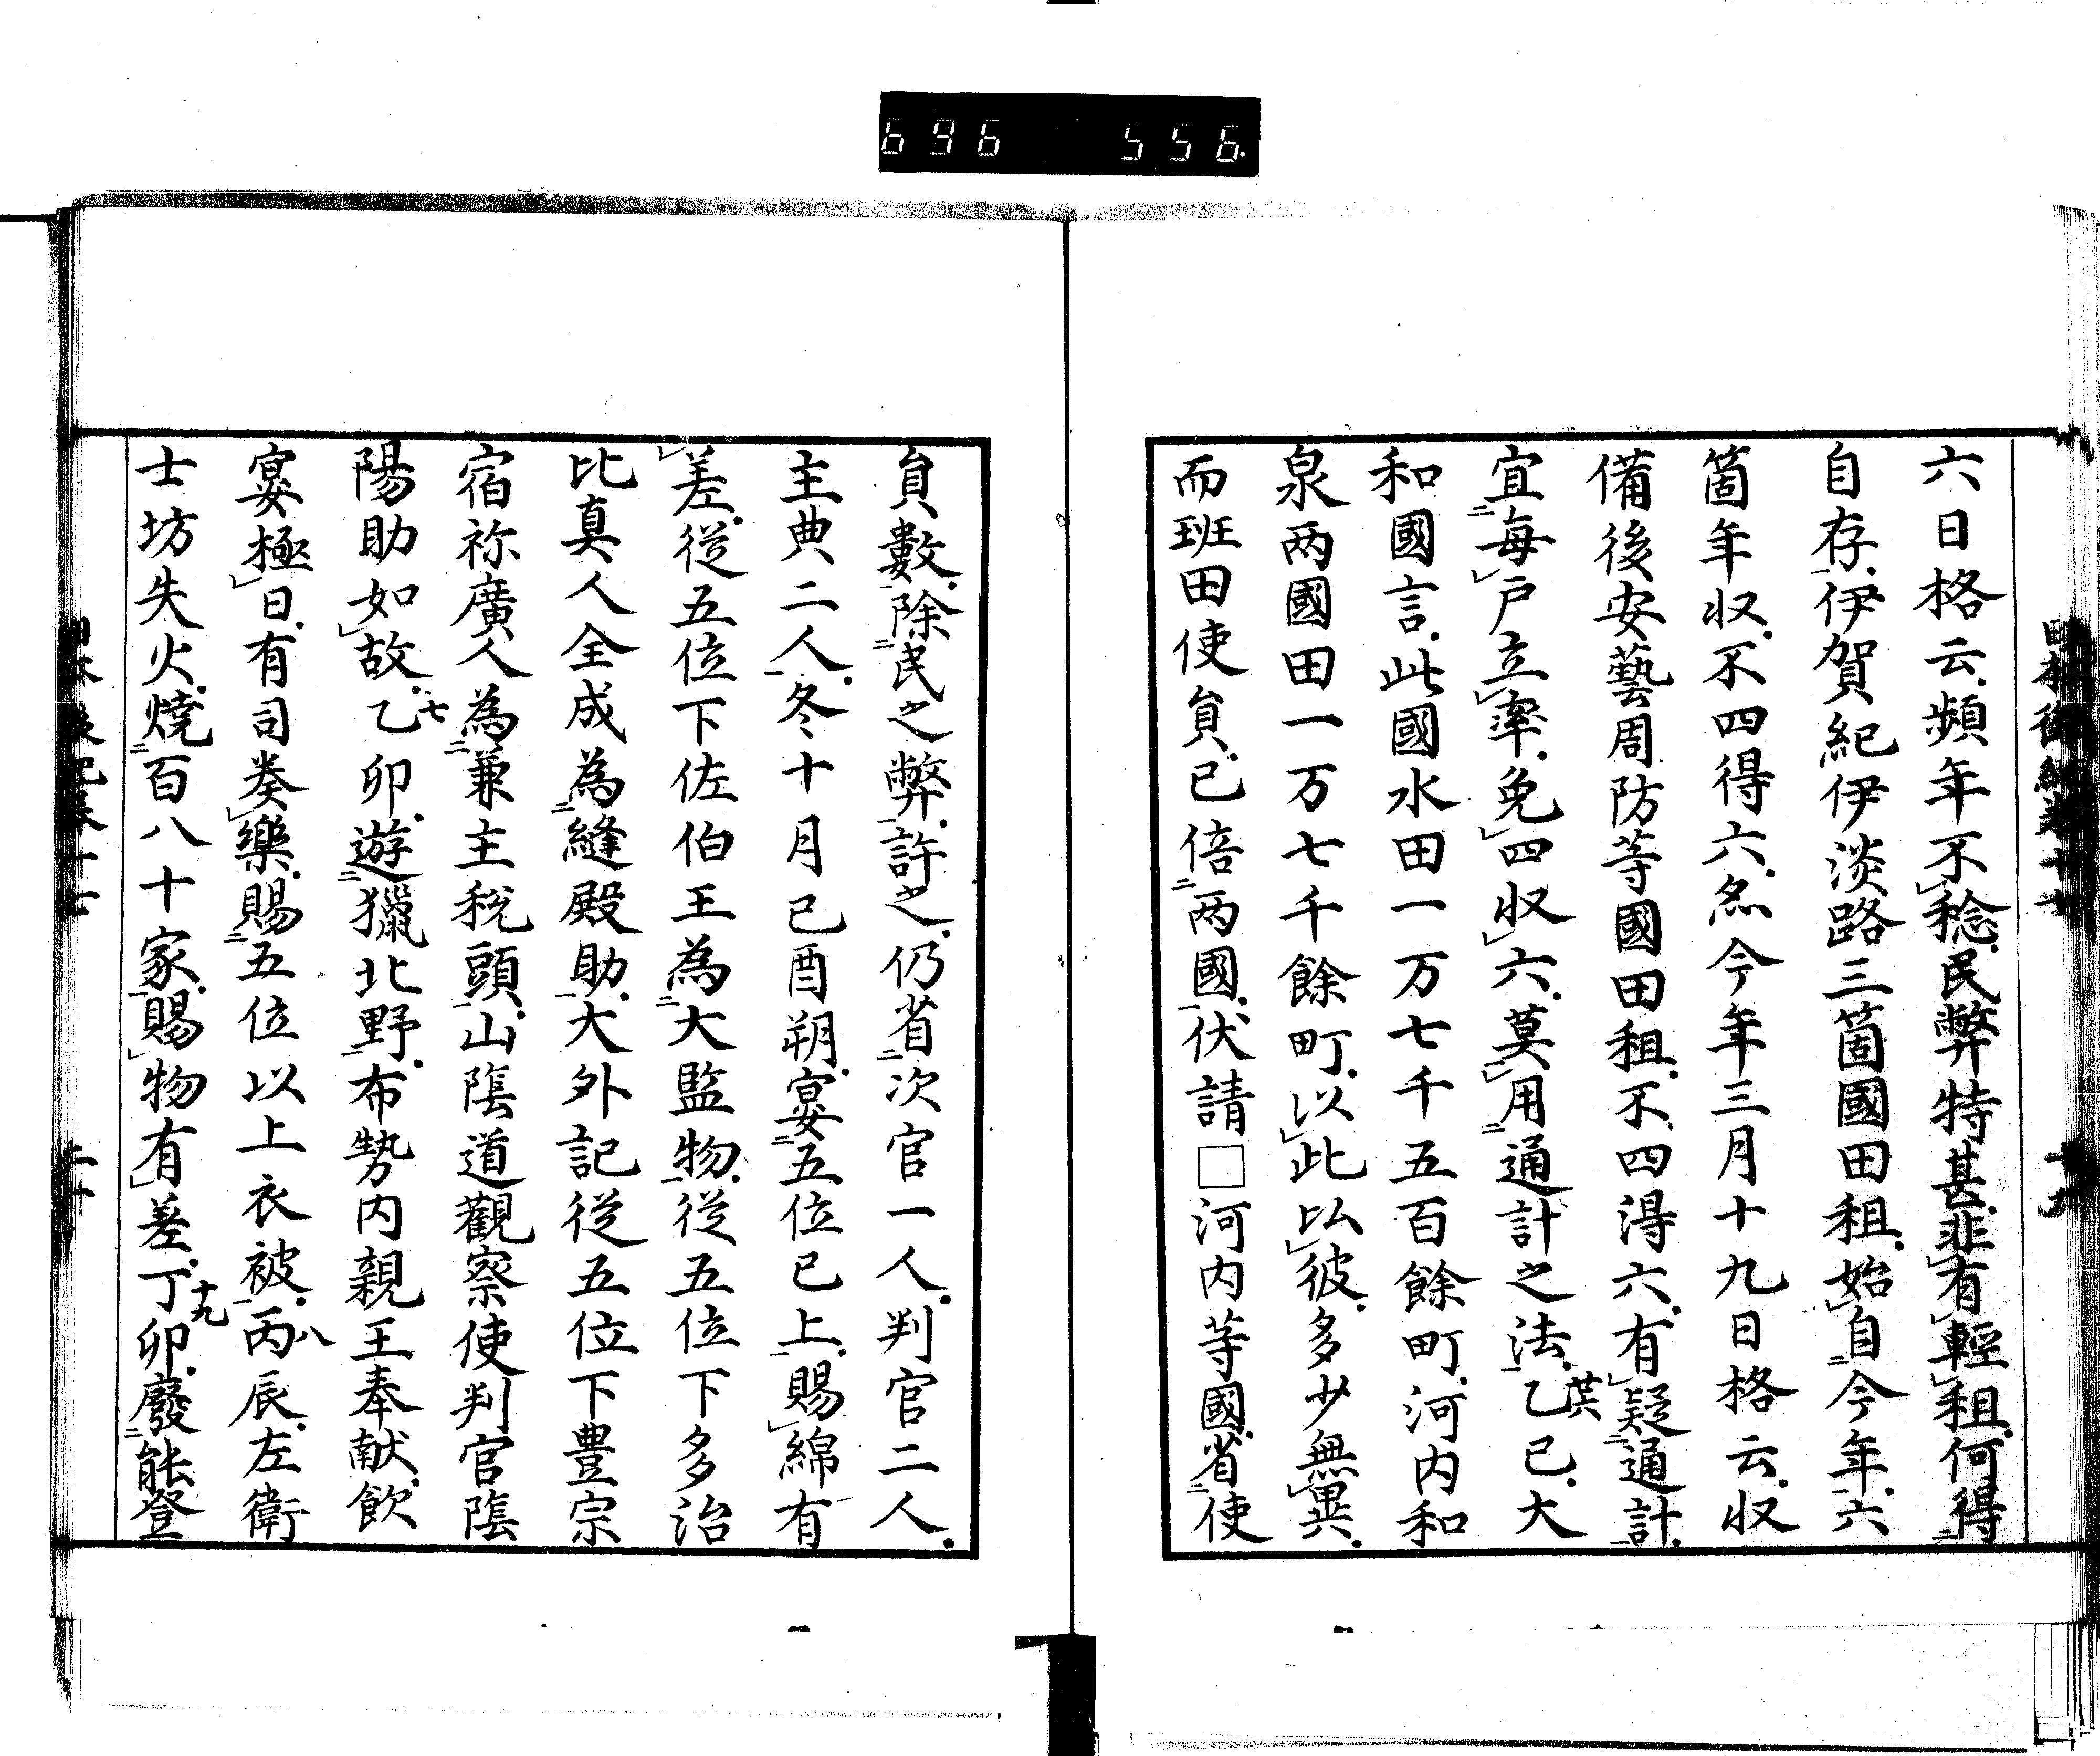 696 556
六日格云頻年不稔民弊特甚非有輕租何得
自存伊賀紀伊淡路三箇國田租始自今年六
箇年収不四得六然今年三月十九日格云収
備後安藝周防等國田租不四得六有疑通計
宜每戸立率免四収六莫用通計之法乙巳大
和國言此國水田一万七千五百餘町河内和
泉两國田一万七千餘町以此㕥彼多少無異
而班田使負已倍两國伏請□河内等國省使
負數除民之弊許之仍省次官一人判官二人
主典二人冬十月己酉朔宴五位已上賜綿有
差從五位下佐伯王為大監物從五位下多治
比真人全成為縫殿助大外記從五位下豊宗
宿祢廣人為兼主税頭山陰道觀察使判官陰
陽助如故乙卯遊獵北野布勢内親王奉献飲
宴極日有司奏樂賜五位以上衣被丙辰左衛
士坊失火燒百八十家賜物有差丁卯廢能登